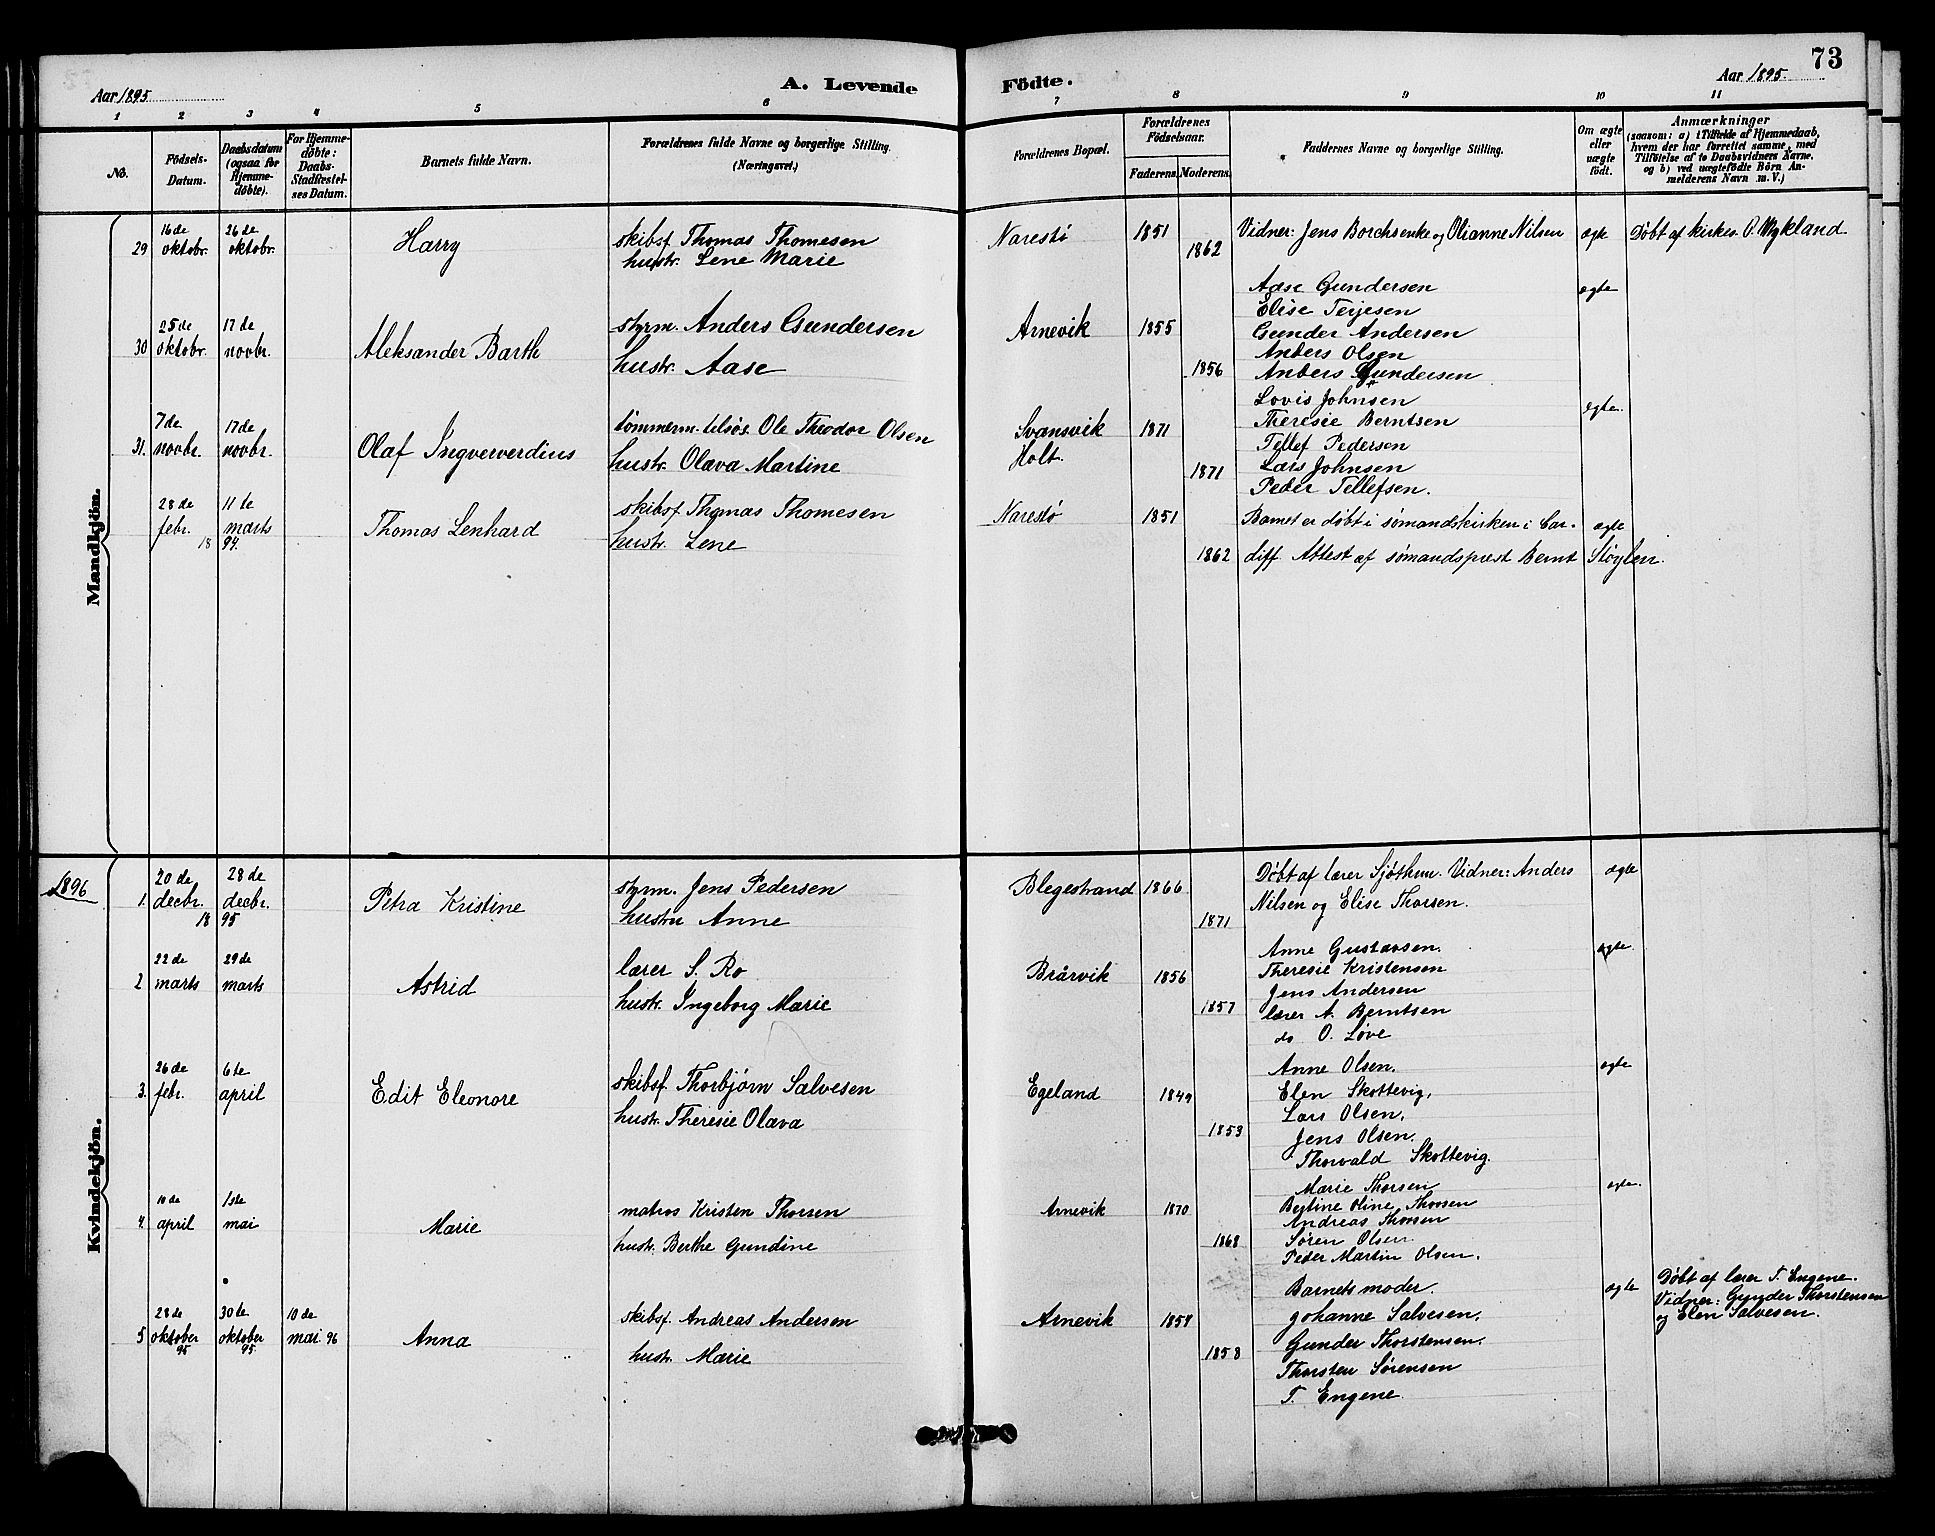 73
Aar 1895.
A. Levende
Födte.
Aar 1895.
1 2 3 4 5 6 7 8 9 10 11
No.
Födsels-
Datum.
Daabsdatum
(ogsaa for
Hjemme-
döbte).
For Hjemme-
döbte:
Daabs-
Stadfæstel-
ses Datum.
Barnets fulde Navn.
Forældrenes fulde Navne og borgerlige Stilling.
(Næringsvei.)
Forældrenes Bopæl.
Forældrenes
Födselsaar.
Faderens. Moderens.
Faddernes Navne og borgerlige Stilling.
Om ægte
eller
uægte
födt.
Anmærkninger
(saasom: a) i Tilfælde af Hjemmedaab,
hvem der har forrettet samme, med
Tilföielse af to Daabsvidners Navne,
og b) ved uægtefödte Börn An-
melderens Navn m. V.)
Mandkjön.
29 16de oktobr. 26de oktobr. Harry
skibsf. Thomas Thomesen
hustr. Lene Marie
Narestø 1851 1862
Vidner: Jens Borchsenke og Olianne Nilsen ægte Døbt af kirkes. O. Mykland
30 25de oktobr. 17de novbr. Aleksander Barth
styrm. Anders Gundersen
hustr. Aase
Arnevik 1855 1856
Aase Gundersen ægte
Elise Terjesen
Gunder Andersen
Anders Olsen
Anders Gundersen
31. 7de novbr. 17de novbr. Olaf Ingververdius
tømmerm. tilsøs Ole Theodor Olsen
hustr. Olava Martine
Svansvik
Holt.
1871 1871
Lovis Johnsen ægte.
Theresie Berntsen
Tellef Pedersen
Lars Johnsen
Peder Tellefsen.
28de febr. 11te marts
18 94.
Thomas Lenhard
skibsf Thomas Thomesen
hustr. Lene
Narestø 1851 1862
Barnet er døbt i sømandskirken i Car- ægte
diff. Attest af sømandspræst Bernt Støylen.
Kvindekjön.
1896
1. 20de decbr. 28de decbr.
18 95
Petra Kristine
styrm. Jens Pedersen
hustru Anne
Blegestrand 1866 1871
Døbt af lærer Sjøthun. Vidner: Anders ægte
Nilsen og Elise Thorsen.
2 22de marts 29de marts Astrid
lærer S. Ro
hustr. Ingeborg Marie
Brårvik 1856 1857
Anne Gustavsen. ægte.
Theresie Kristensen
Jens Andersen
lærer A. Berntsen
do O. Løve
3. 26de febr. 6te april Edit Eleonore
skibsf. Thorbjørn Salvesen
hustr. Theresie Olava
Egeland 1849 1853
Anne Olsen. ægte
Elen Skottevig.
Lars Olsen.
Jens Olsen.
Thorvald Skottevig.
4. 10de april 1ste mai Marie
matros Kristen Thorsen
hustr. Berthe Gundine
Arnevik 1870 1868
Marie Thorsen ægte.
Oline Thorsen
Andreas Thorsen
Søren Olsen.
Peder Martin Olsen.
5 28de oktober 95 30te oktober 95 10de mai 96 Anna
skibsf. Andreas Andersen
hustr. Marie
Arnevik 1858
Barnets moder. ægte
Johanne Salvesen.
Gunder Thorstensen.
Thorsten Sørensen
T. Engene.
Døbt af lærer T. Engene.
Vidner: Gunder Thorstensen
og Elen Salvesen.